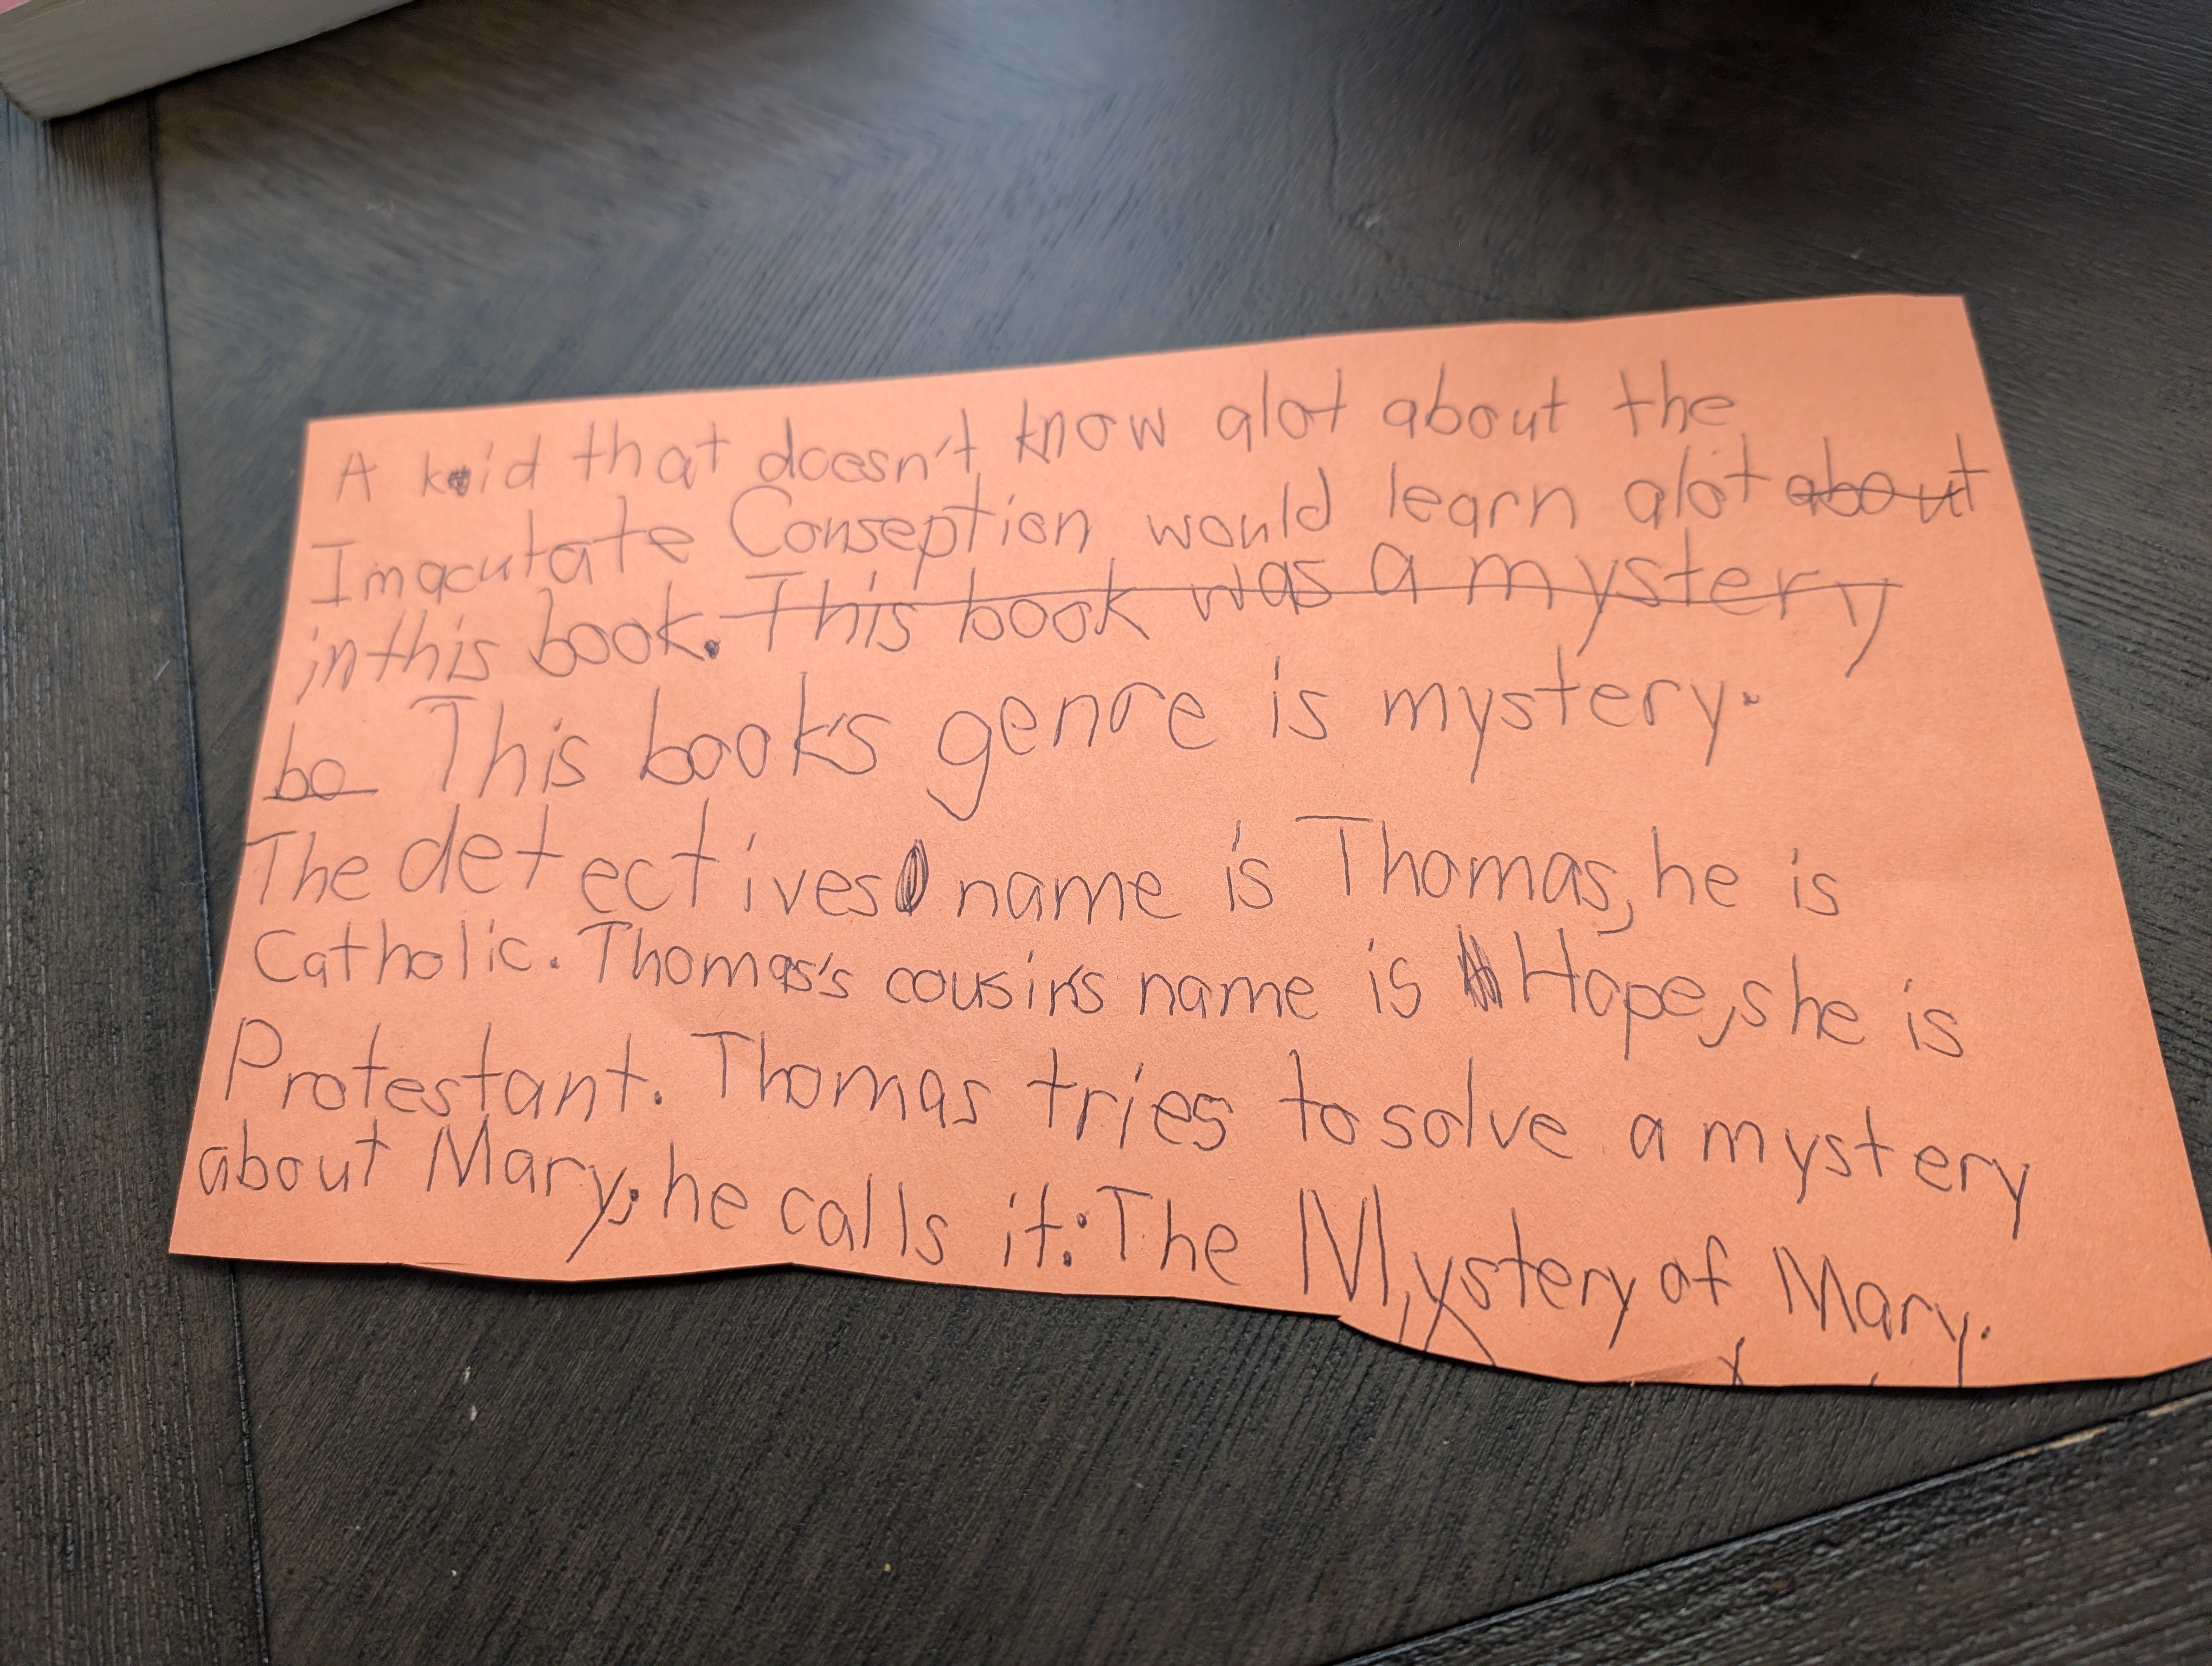 A kid that doesn't know alot about the
Imacutate Conseption would learn alot about
in this book. This book was a mystery
bo This book's genre is mystery.
The detectives name is Thomas, he is
Catholic. Thomas's cousin's name is Hope, she is
Protestant. Thomas tries to solve a mystery
about Mary; he calls it: The Mystery of Mary.